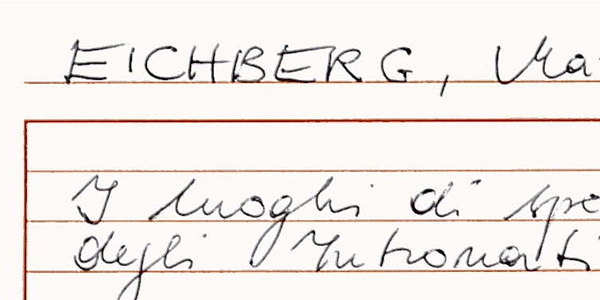 EICHBERG, Ma
I luoghi di spe
degli Intronati